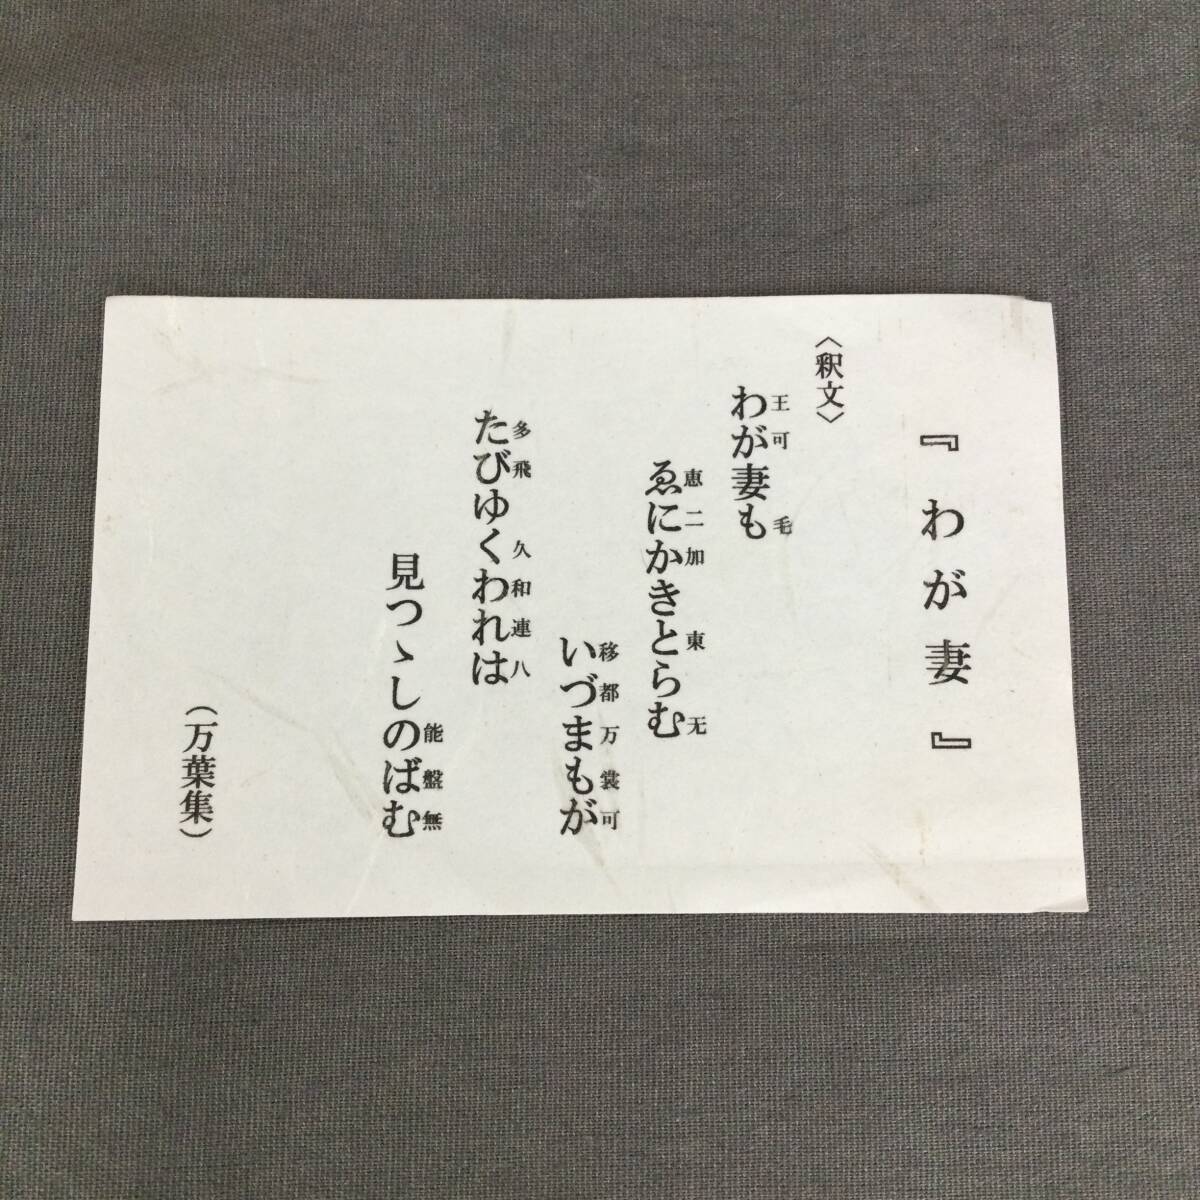 『わが妻』
〈釈文〉
王可毛
わが妻も
恵二加東无
ゑにかきとらむ
移都万裳可
いづまもが
多飛久和連八
たびゆくわれは
能盤無
見つゝしのばむ
（万葉集）